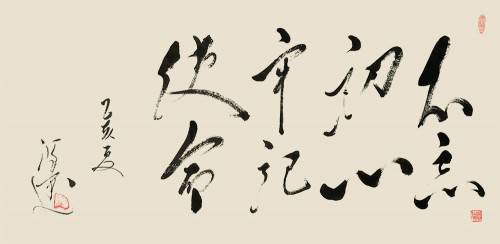 不忘
初心
牢记
使命
己亥夏